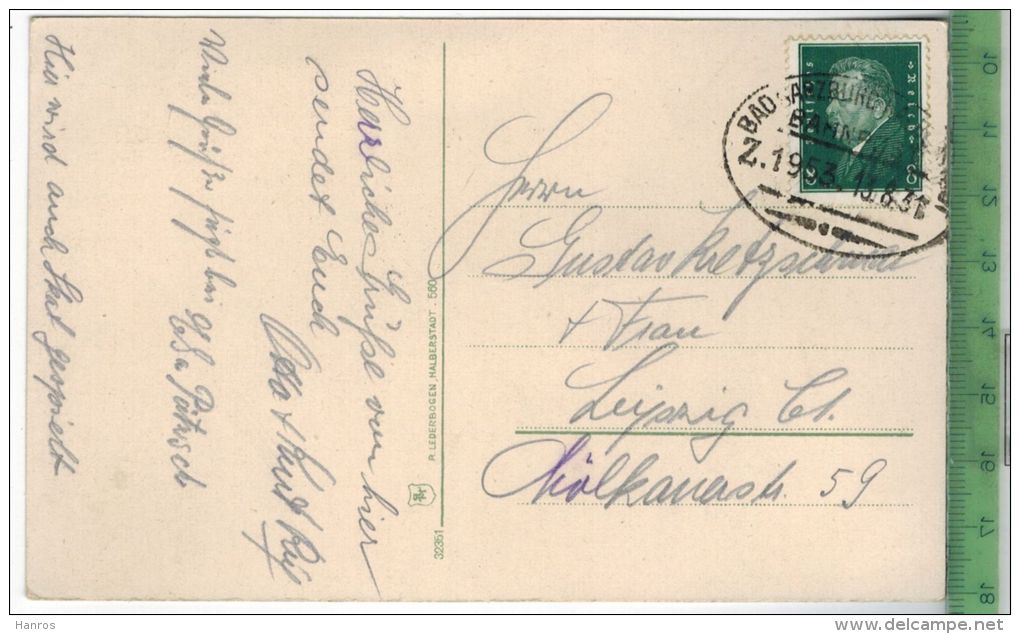 Herzliche Grüße von hier
sendet Euch
Otto +
Viele Grüße
Elsa
Hier wird auch Skat gespielt
R. LEDERBOGEN, HALBERSTADT. 560
32351
Deutsches Reich
8 8
BAD HARZBURG
BAHN
Z.1953. 13.6.31
Herrn
Gustav Kretzschmar
+ Frau
Leipzig
Mölkauerstr. 59
10
11
12
13
14
15
16
17
18
Hanros
delcampe.net